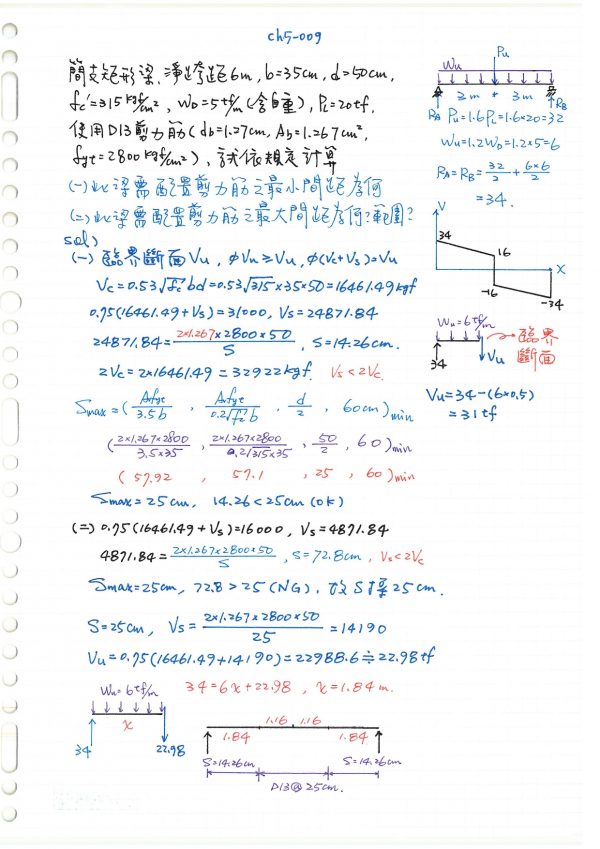 ch5-009
簡支矩形梁,淨跨距6m,b=35cm,d=50cm,
fc'=315kgf/cm²,WD=5tf/m(含自重),PL=20tf,
使用D13剪力筋(db=1.27cm,Ab=1.267cm²,
fyt=2800kgf/cm²),試依規定計算
(一)此梁需配置剪力筋之最小間距為何
(二)此梁需配置剪力筋之最大間距為何?範圍?
Wu Pu
3m + 3m
RA RB
Pu=1.6PL=1.6×20=32
Wu=1.2WD=1.2×5=6
RA=RB=32/2+6×6/2
=34.
V
34
16
X
-16
-34
sol)
(一)臨界斷面Vu,φVn≥Vu,φ(Vc+Vs)=Vu
Vc=0.53√fc' bd=0.53√315×35×50=16461.49kgf
0.75(16461.49+Vs)=31000,Vs=24871.84
24871.84=2×1.267×2800×50/S,S=14.26cm.
2Vc=2×16461.49=32922kgf. Vs<2Vc.
Wu=6tf/m
臨界斷面
34 Vu
Vu=34-(6×0.5)
=31tf
Smax=(Avfyt/3.5b,Avfyt/0.2√fc' b,d/2,60cm)min
(2×1.267×2800/3.5×35,2×1.267×2800/0.2√315×35,50/2,60)min
(57.92,57.1,25,60)min
Smax=25cm,14.26<25cm(ok)
(二)0.75(16461.49+Vs)=16000,Vs=4871.84
4871.84=2×1.267×2800×50/S,S=72.8cm,Vs<2Vc
Smax=25cm,72.8>25(NG),故S擇25cm.
S=25cm,Vs=2×1.267×2800×50/25=14190
Vu=0.75(16461.49+14190)=22988.6≒22.98tf
Wu=6tf/m
x
34 22.98
34=6x+22.98,x=1.84m.
1.16 1.16
1.84 1.84
S=14.26cm S=14.26cm
D13@25cm.